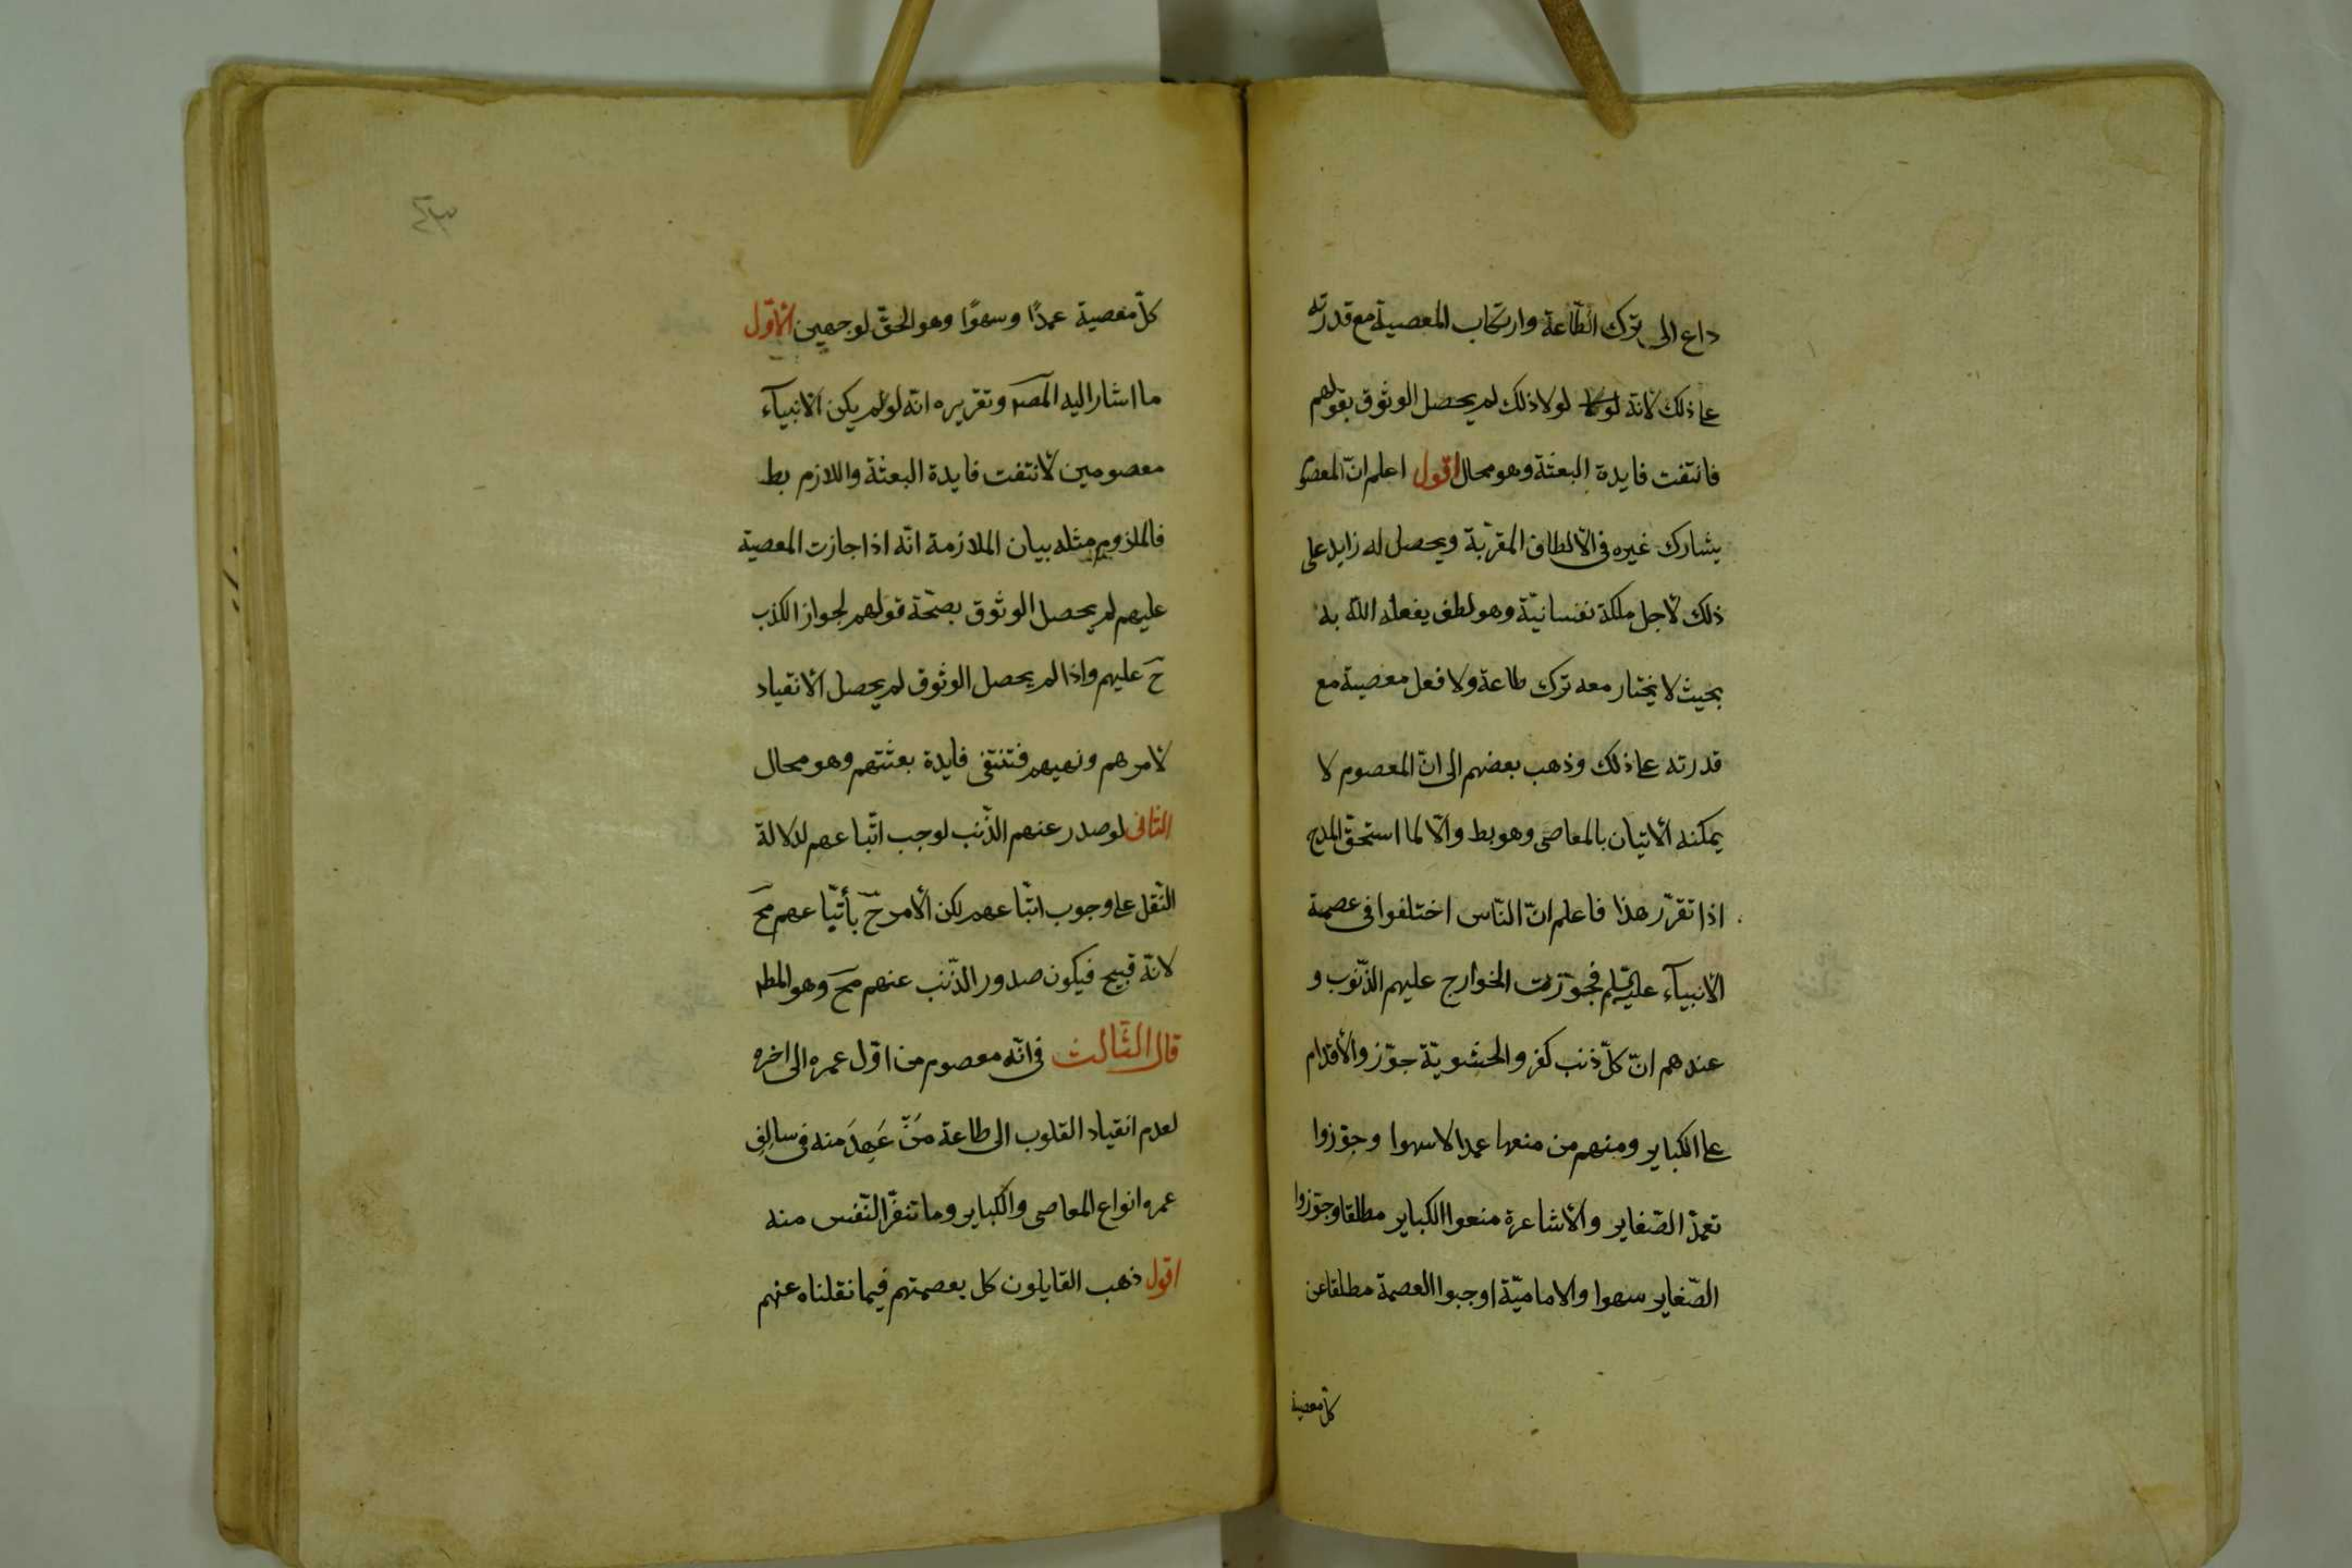 داع الى ترك الطّاعة وارتكاب المعصية مع قدرته
على ذلك لانّه لولا لولا ذلك لم يحصل الوثوق بقولهم
فانتفت فايدة البعثة وهو محال اقول اعلم انّ المعصوم
يشارك غيره فى الالطاف المقرّبة ويحصل له زايد على
ذلك لاجل ملكة نفسانيّة وهو لطف يفعله اللّه به
بحيث لا يختار معه ترك طاعة ولا فعل معصية مع
قدرته على ذلك وذهب بعضهم الى انّ المعصوم لا
يمكنه الاتيان بالمعاصى وهو بط والّا لما استحقّ المدح
اذا تقرّر هذا فاعلم انّ النّاس اختلفوا فى عصمة
الانبيآء عليهم السلم فجوّزت الخوارج عليهم الذّنوب و
عندهم انّ كلّ ذنب كفر والحشويّة جوّزوا الاقدام
على الكباير ومنهم من منعها عمدا لا سهوا وجوّزوا
تعمّد الصّغاير والاشاعرة منعوا الكباير مطلقا وجوّزوا
الصّغاير سهوا والاماميّة اوجبوا العصمة مطلقا عن
كلّ معصية
٤٣
كلّ معصية عمدًا وسهوًا وهو الحقّ لوجهين الاوّل
ما اشار اليه المصـ وتقريره انّه لو لم يكن الانبيآء
معصومين لانتفت فايدة البعثة واللازم بط
فالملزوم مثله بيان الملازمة انّه اذا جازت المعصية
عليهم لم يحصل الوثوق بصحّة قولهم لجواز الكذب
ح عليهم واذا لم يحصل الوثوق لم يحصل الانقياد
لامرهم ونهيهم فتنتفى فايدة بعثتهم وهو محال
الثانى لو صدر عنهم الذّنب لوجب اتّباعهم لدلالة
النّقل على وجوب اتّباعهم لكن الأمر ح بأتّباعهم مح
لانّه قبيح فيكون صدور الذّنب عنهم مح وهو المط
قال الثّالث فى انّه معصوم من اوّل عمره الى اخره
لعدم انقياد القلوب الى طاعة مَنْ عَهِدَ منه فى سالِفِ
عمره انواع المعاصى والكباير وما تنفرّ النّفس منه
اقول ذهب القايلون كل بعصمتهم فيما نقلناه عنهم